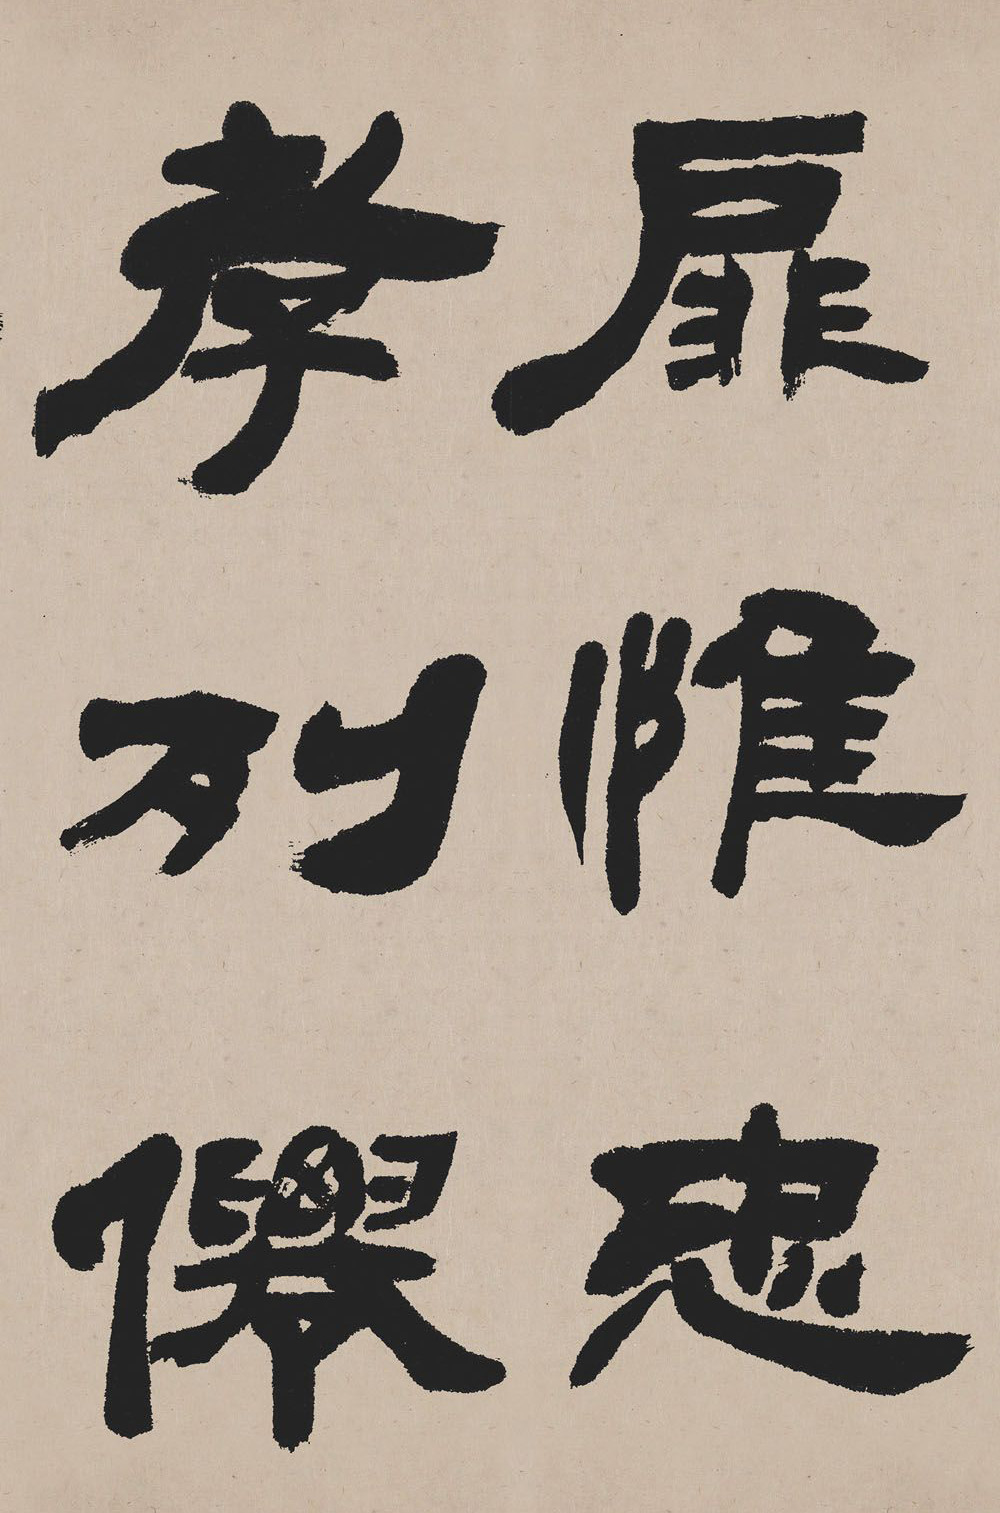 扉惟忠
孝列僊